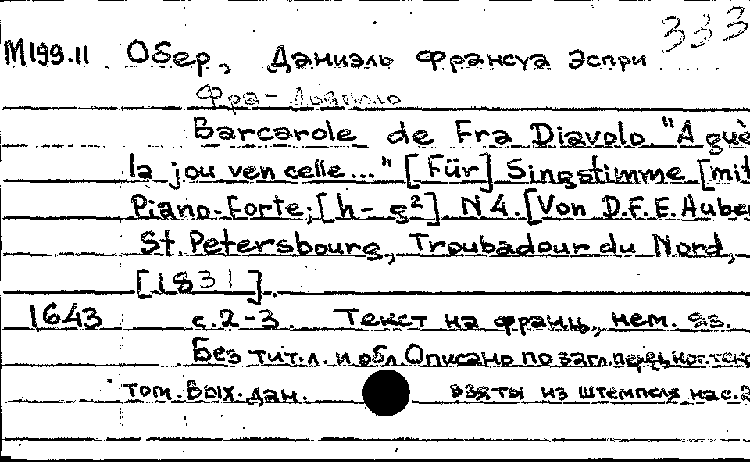 333
М199.11 Обер, Даниэль Франсуа Эспри
Фра-Дьяволо
Barcarole de Fra Diavolo. "A guè
la jou ven celle..." [Für] Singstimme [mit
Piano-Forte; [h - g²]. N 4. [Von D.F.E. Auber
St. Petersbourg, Troubadour du Nord,
[1831].
1643 с. 2-3. Текст на франц., нем. яз.
Без тит. л. и обл. Описано по загл. перед нот. текс
том. Вых. дан. взяты из штемпеля на с. 2